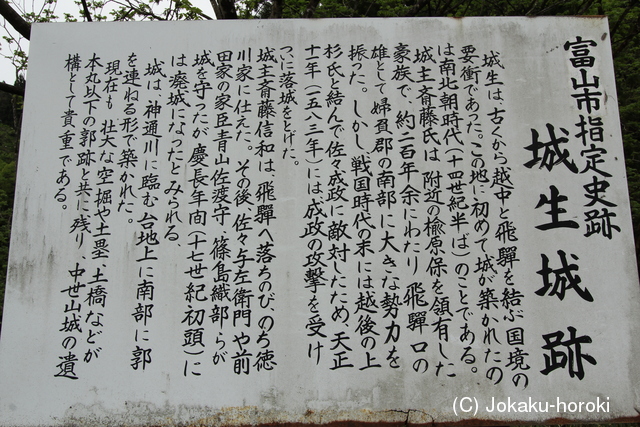 富山市指定史跡
城生城跡
城生は、古くから越中と飛驒を結ぶ国境の
要衝であった。この地に初めて城が築かれたの
は南北朝時代(十四世紀半ば)のことである。
城主斎藤氏は、附近の楡原保を領有した
豪族で、約二百年余にわたり飛驒口の
雄として婦負郡の南部に大きな勢力を
振った。しかし戦国時代の末には越後の上
杉氏と結んで佐々成政に敵対したため、天正
十一年(一五八三年)には成政の攻撃を受け
ついに落城をとげた。
城主斎藤信和は、飛驒へ落ちのび、のち徳
川家に仕えた。その後、佐々与左衛門や前
田家の家臣青山佐渡守、篠島織部らが
城を守ったが慶長年間(十七世紀初頭)に
は廃城になったとみられる。
城は、神通川に臨む台地上に南部に郭
を連ねる形で築かれた。
現在も壮大な空掘や土塁、土橋などが
本丸以下の郭跡と共に残り、中世山城の遺
構として貴重である。
(C) Jokaku-horoki